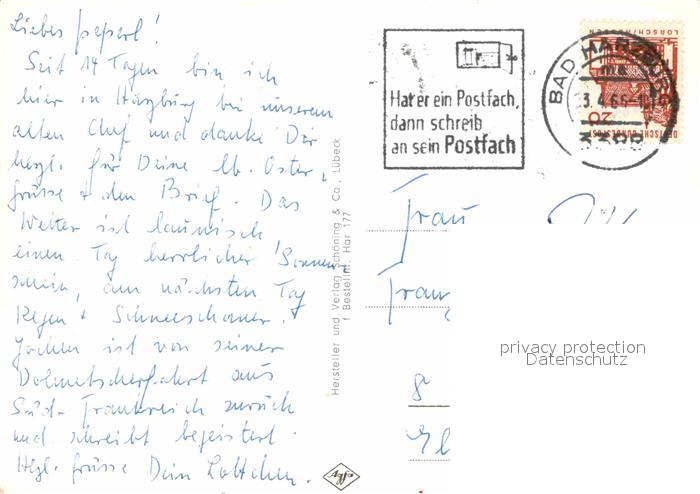 Liebes peperl!
Seit 14 Tagen bin ich
hier in Harzburg bei unserem
alten Chef und danke Dir
herzl. für Deine lb. Oster-
grüsse + den Brief. Das
Wetter ist launisch
einen Tag herrlicher Sonnen-
schein, am nächsten Tag
Regen + Schneeschauer.
Jochen ist von seiner
Dolmetscherfahrt aus
Süd-Frankreich zurück
und schreibt begeistert.
Hzgl. grüsse Dein Lottchen.
Hersteller und Verlag Schöning & Co., Lübeck
Bestellnr. Har 177
Agfa
Hat er ein Postfach,
dann schreib
an sein Postfach
BAD HARZBURG
3388
DEUTSCHE BUNDESPOST
20
Frau
Frau
privacy protection
Datenschutz